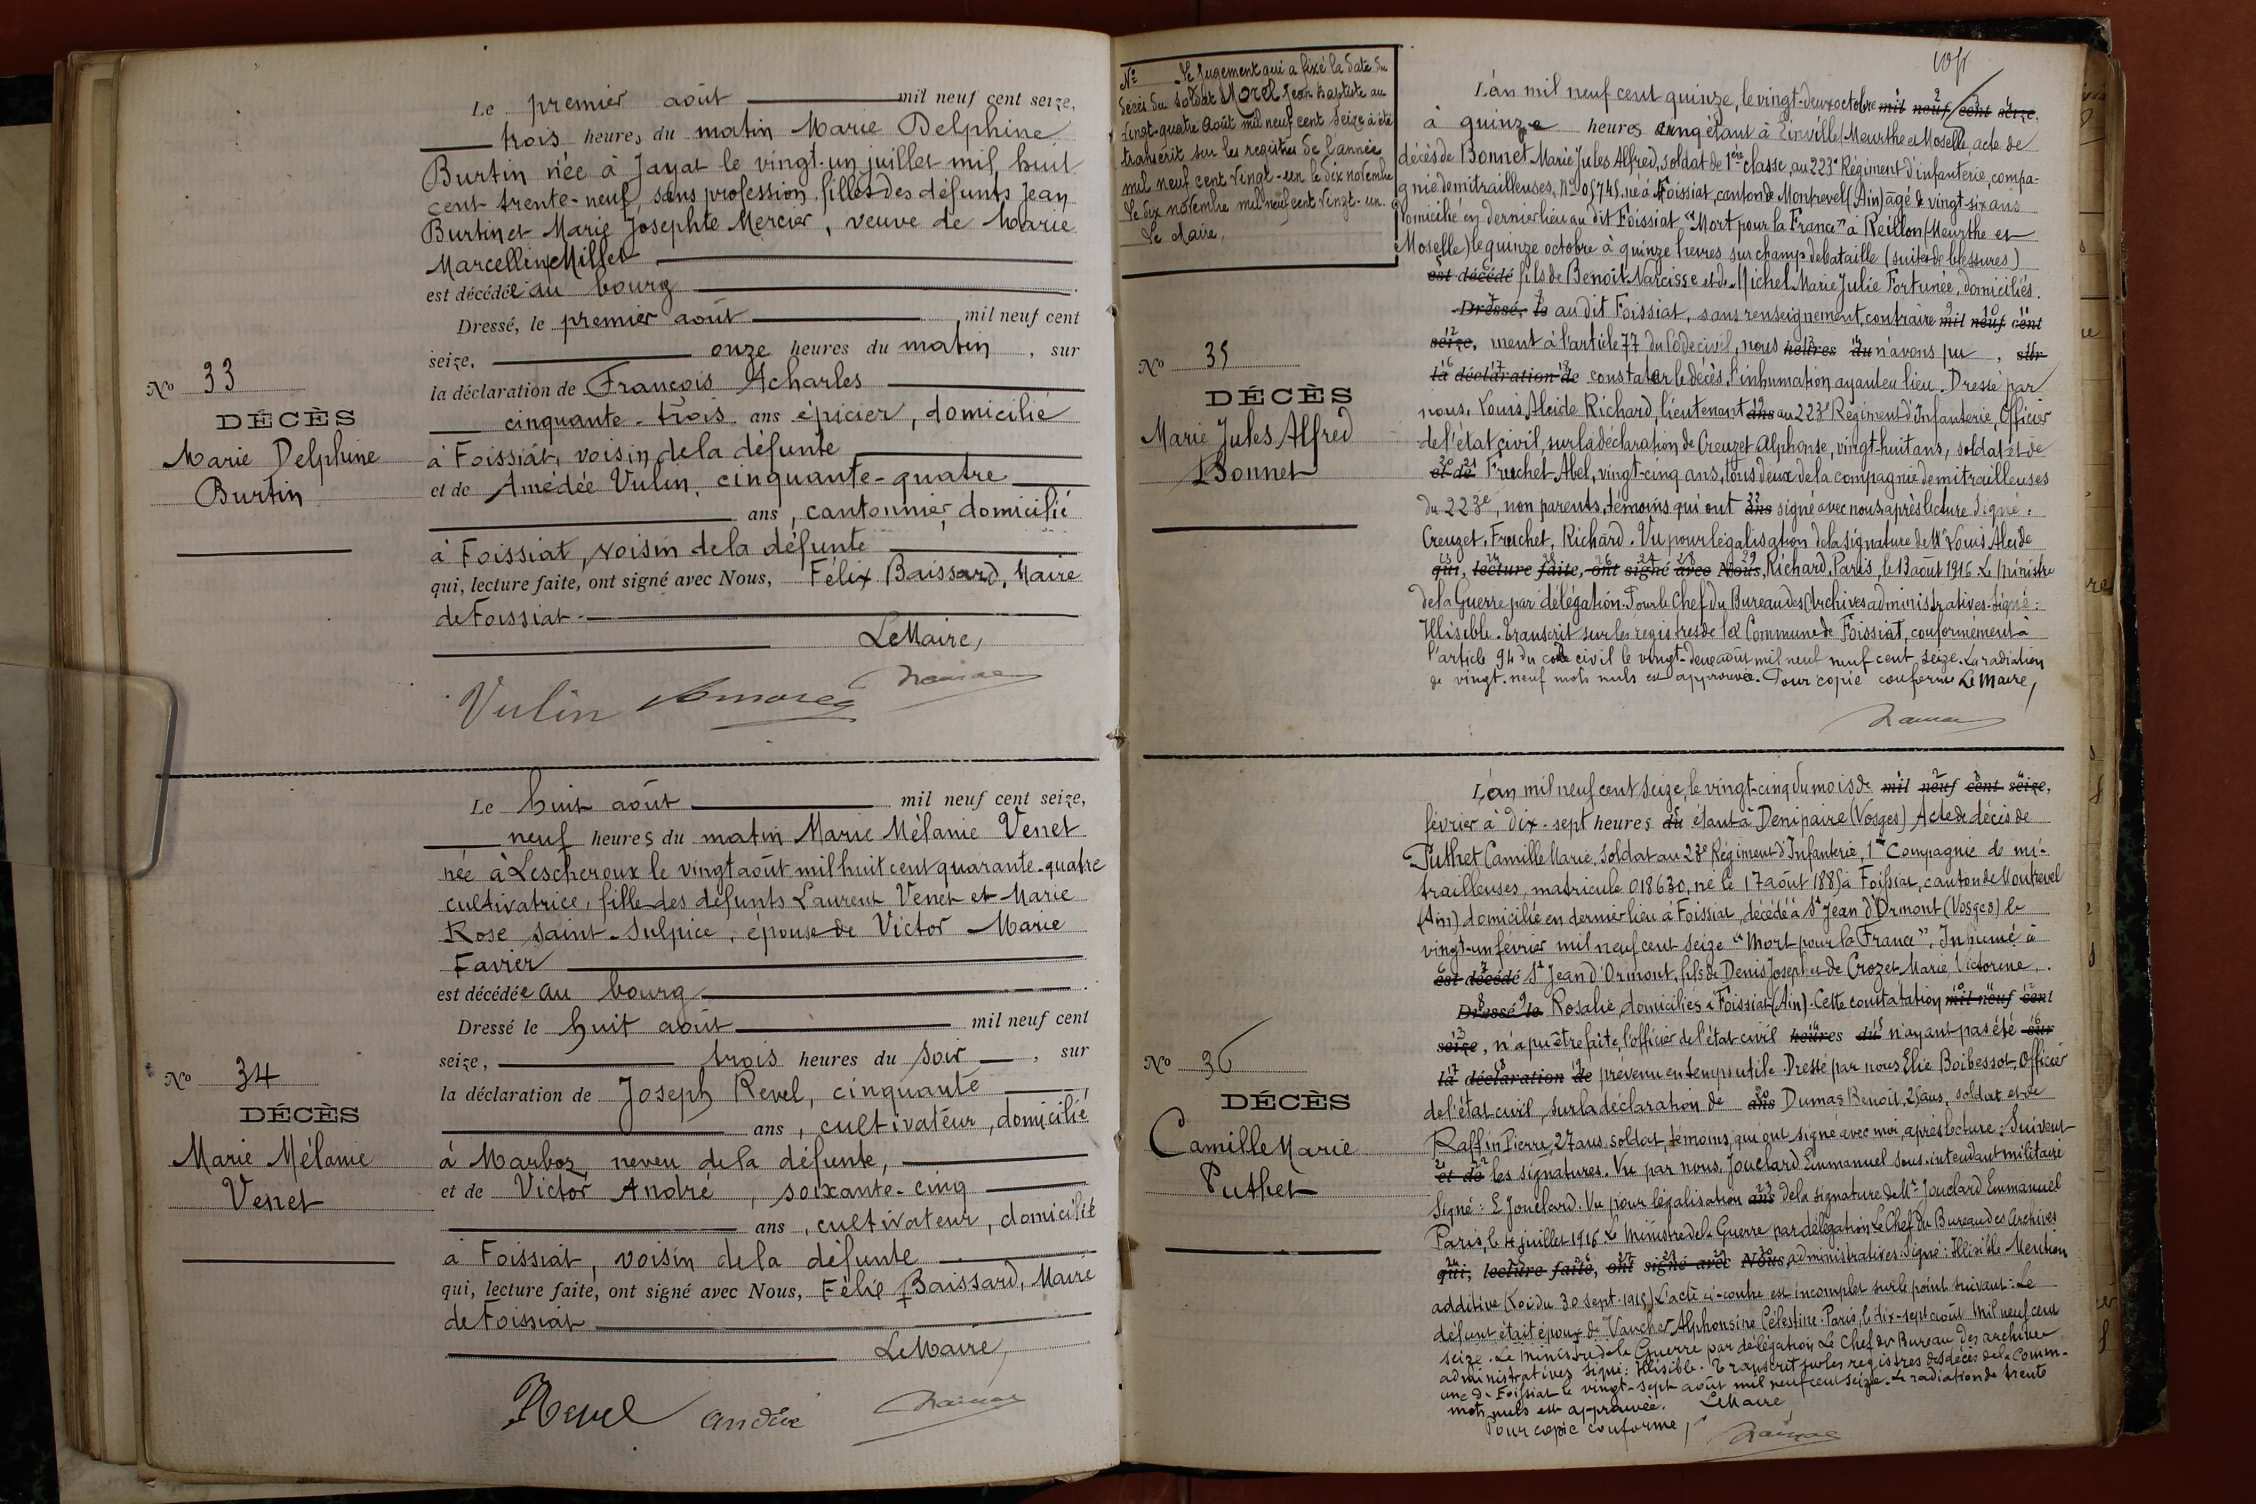 Le premier août mil neuf cent seize,
trois heures du matin Marie Delphine
Burtin née à Jayat le vingt-un juillet mil huit
cent trente-neuf, sans profession, fille des défunts Jean
Burtin et Marie Josephte Mercier, veuve de Marie
Marcellin Millet
est décédée au bourg
Dressé, le premier août mil neuf cent
seize, onze heures du matin, sur
la déclaration de François Acharles
cinquante-trois ans épicier, domicilié
à Foissiat, voisin de la défunte
et de Amédée Vulin, cinquante-quatre
ans, cantonnier, domicilié
à Foissiat, voisin de la défunte
qui, lecture faite, ont signé avec Nous, Félix Baissard, Maire
de Foissiat.
Le Maire,
Vulin
No 33
DÉCÈS
Marie Delphine
Burtin
Le huit août mil neuf cent seize,
neuf heures du matin Marie Mélanie Venet
née à Lescheroux le vingt août mil huit cent quarante-quatre
cultivatrice, fille des défunts Laurent Venet et Marie
Rose Saint-Sulpice, épouse de Victor Marie
Favier
est décédée au bourg
Dressé le huit août mil neuf cent
seize, trois heures du soir, sur
la déclaration de Joseph Revel, cinquante
ans, cultivateur, domicilié
à Marboz, neveu de la défunte,
et de Victor André, soixante-cinq
ans, cultivateur, domicilié
à Foissiat, voisin de la défunte
qui, lecture faite, ont signé avec Nous, Félix Baissard, Maire
de Foissiat
Le Maire,
Revel André
No 34
DÉCÈS
Marie Mélanie
Venet
No Le Jugement qui a fixé la date du
décès du soldat Morel Jean Baptiste au
vingt-quatre Août mil neuf cent seize a été
transcrit sur les registres de l'année
mil neuf cent vingt-un le dix novembre
Le dix novembre mil neuf cent vingt-un.
Le Maire,
L'an mil neuf cent quinze, le vingt-deux octobre mil neuf cent seize,
à quinze heures cinq étant à Einville (Meurthe et Moselle, acte de
décès de Bonnet Marie Jules Alfred, soldat de 1ère classe, au 223e Régiment d'infanterie, compa-
gnie de mitrailleuses, No 05745, né à Foissiat, canton de Montrevel (Ain) âgé de vingt-six ans
domicilié en dernier lieu au dit Foissiat "Mort pour la France" à Reillon (Meurthe et
Moselle) le quinze octobre à quinze heures sur champ de bataille (suites de blessures)
est décédé fils de Benoît Narcisse et de Michel Marie Julie Fortunée, domiciliés.
Dressé, le au dit Foissiat, sans renseignement, contraire mil neuf cent
seize, ment à l'article 77 du Code civil, nous heures du n'avons pu, sur
la déclaration de constater le décès, l'inhumation ayant eu lieu. Dressé par
nous, Louis Alcide Richard, lieutenant ans au 223e Régiment d'Infanterie, Officier
de l'état civil, sur la déclaration de Creuzet Alphonse, vingt-huit ans, soldat et de
et de Fruchet Abel, vingt-cinq ans, tous deux de la compagnie de mitrailleuses
du 223e, non parents, témoins qui ont ans signé avec nous après lecture. Signé:
Creuzet, Fruchet, Richard. Vu pour légalisation de la signature de Mr Louis Alcide
qui, lecture faite, ont signé avec Nous, Richard, Paris, le 13 août 1916. Le Ministre
de la Guerre par délégation. Pour le Chef du Bureau des Archives administratives. Signé:
Illisible. Transcrit sur les registres de la Commune de Foissiat, conformément à
l'article 94 du code civil le vingt-deux août mil neuf neuf cent seize. La radiation
de vingt-neuf mots nuls est approuvée. Pour copie conforme Le Maire,
No 35
DÉCÈS
Marie Jules Alfred
Bonnet
L'an mil neuf cent seize, le vingt-cinq du mois de mil neuf cent seize,
février à dix-sept heures du étant à Denipaire (Vosges) Acte de décès de
Puthet Camille Marie, soldat au 23e Régiment d'Infanterie, 1re Compagnie de mi-
trailleuses, matricule 018630, né le 17 août 1885 à Foissiat, canton de Montrevel
(Ain) domicilié en dernier lieu à Foissiat, décédé à St Jean d'Ormont (Vosges) le
vingt-un février mil neuf cent seize "Mort pour la France". Inhumé à
est décédé St Jean d'Ormont, fils de Denis Joseph et de Crozet Marie Victorine,
Dressé le Rosalie, domiciliés à Foissiat (Ain). Cette constatation mil neuf cent
seize, n'a pu être faite, l'officier de l'état civil heures du n'ayant pas été sur
la déclaration de prévenu en temps utile. Dressé par nous Elie Boibessot, Officier
de l'état civil, sur la déclaration de ans Dumas Benoît, 25 ans, soldat et de
Raffin Pierre, 27 ans, soldat, témoins, qui ont signé avec moi, après lecture. Suivent
et de les signatures. Vu par nous, Jouclard Emmanuel sous-intendant militaire
Signé: E Jouclard. Vu pour légalisation ans de la signature de Mr Jouclard Emmanuel
Paris, le 4 juillet 1916 Le Ministre de la Guerre par délégation Le Chef du Bureau des Archives
qui, lecture faite, ont signé avec Nous, administratives. Signé: Illisible Mention
additive (Loi du 30 sept. 1915) L'acte ci-contre est incomplet sur le point suivant: Le
défunt était époux de Vaucher Alphonsine Célestine. Paris, le dix-sept août mil neuf cent
seize. Le Ministre de la Guerre par délégation Le Chef du Bureau des archives
administratives Signé: Illisible. Transcrit sur les registres des décès de la Comm-
une de Foissiat le vingt-sept août mil neuf cent seize. La radiation de trente
mots nuls est approuvée. Le Maire
Pour copie conforme,
No 36
DÉCÈS
Camille Marie
Puthet